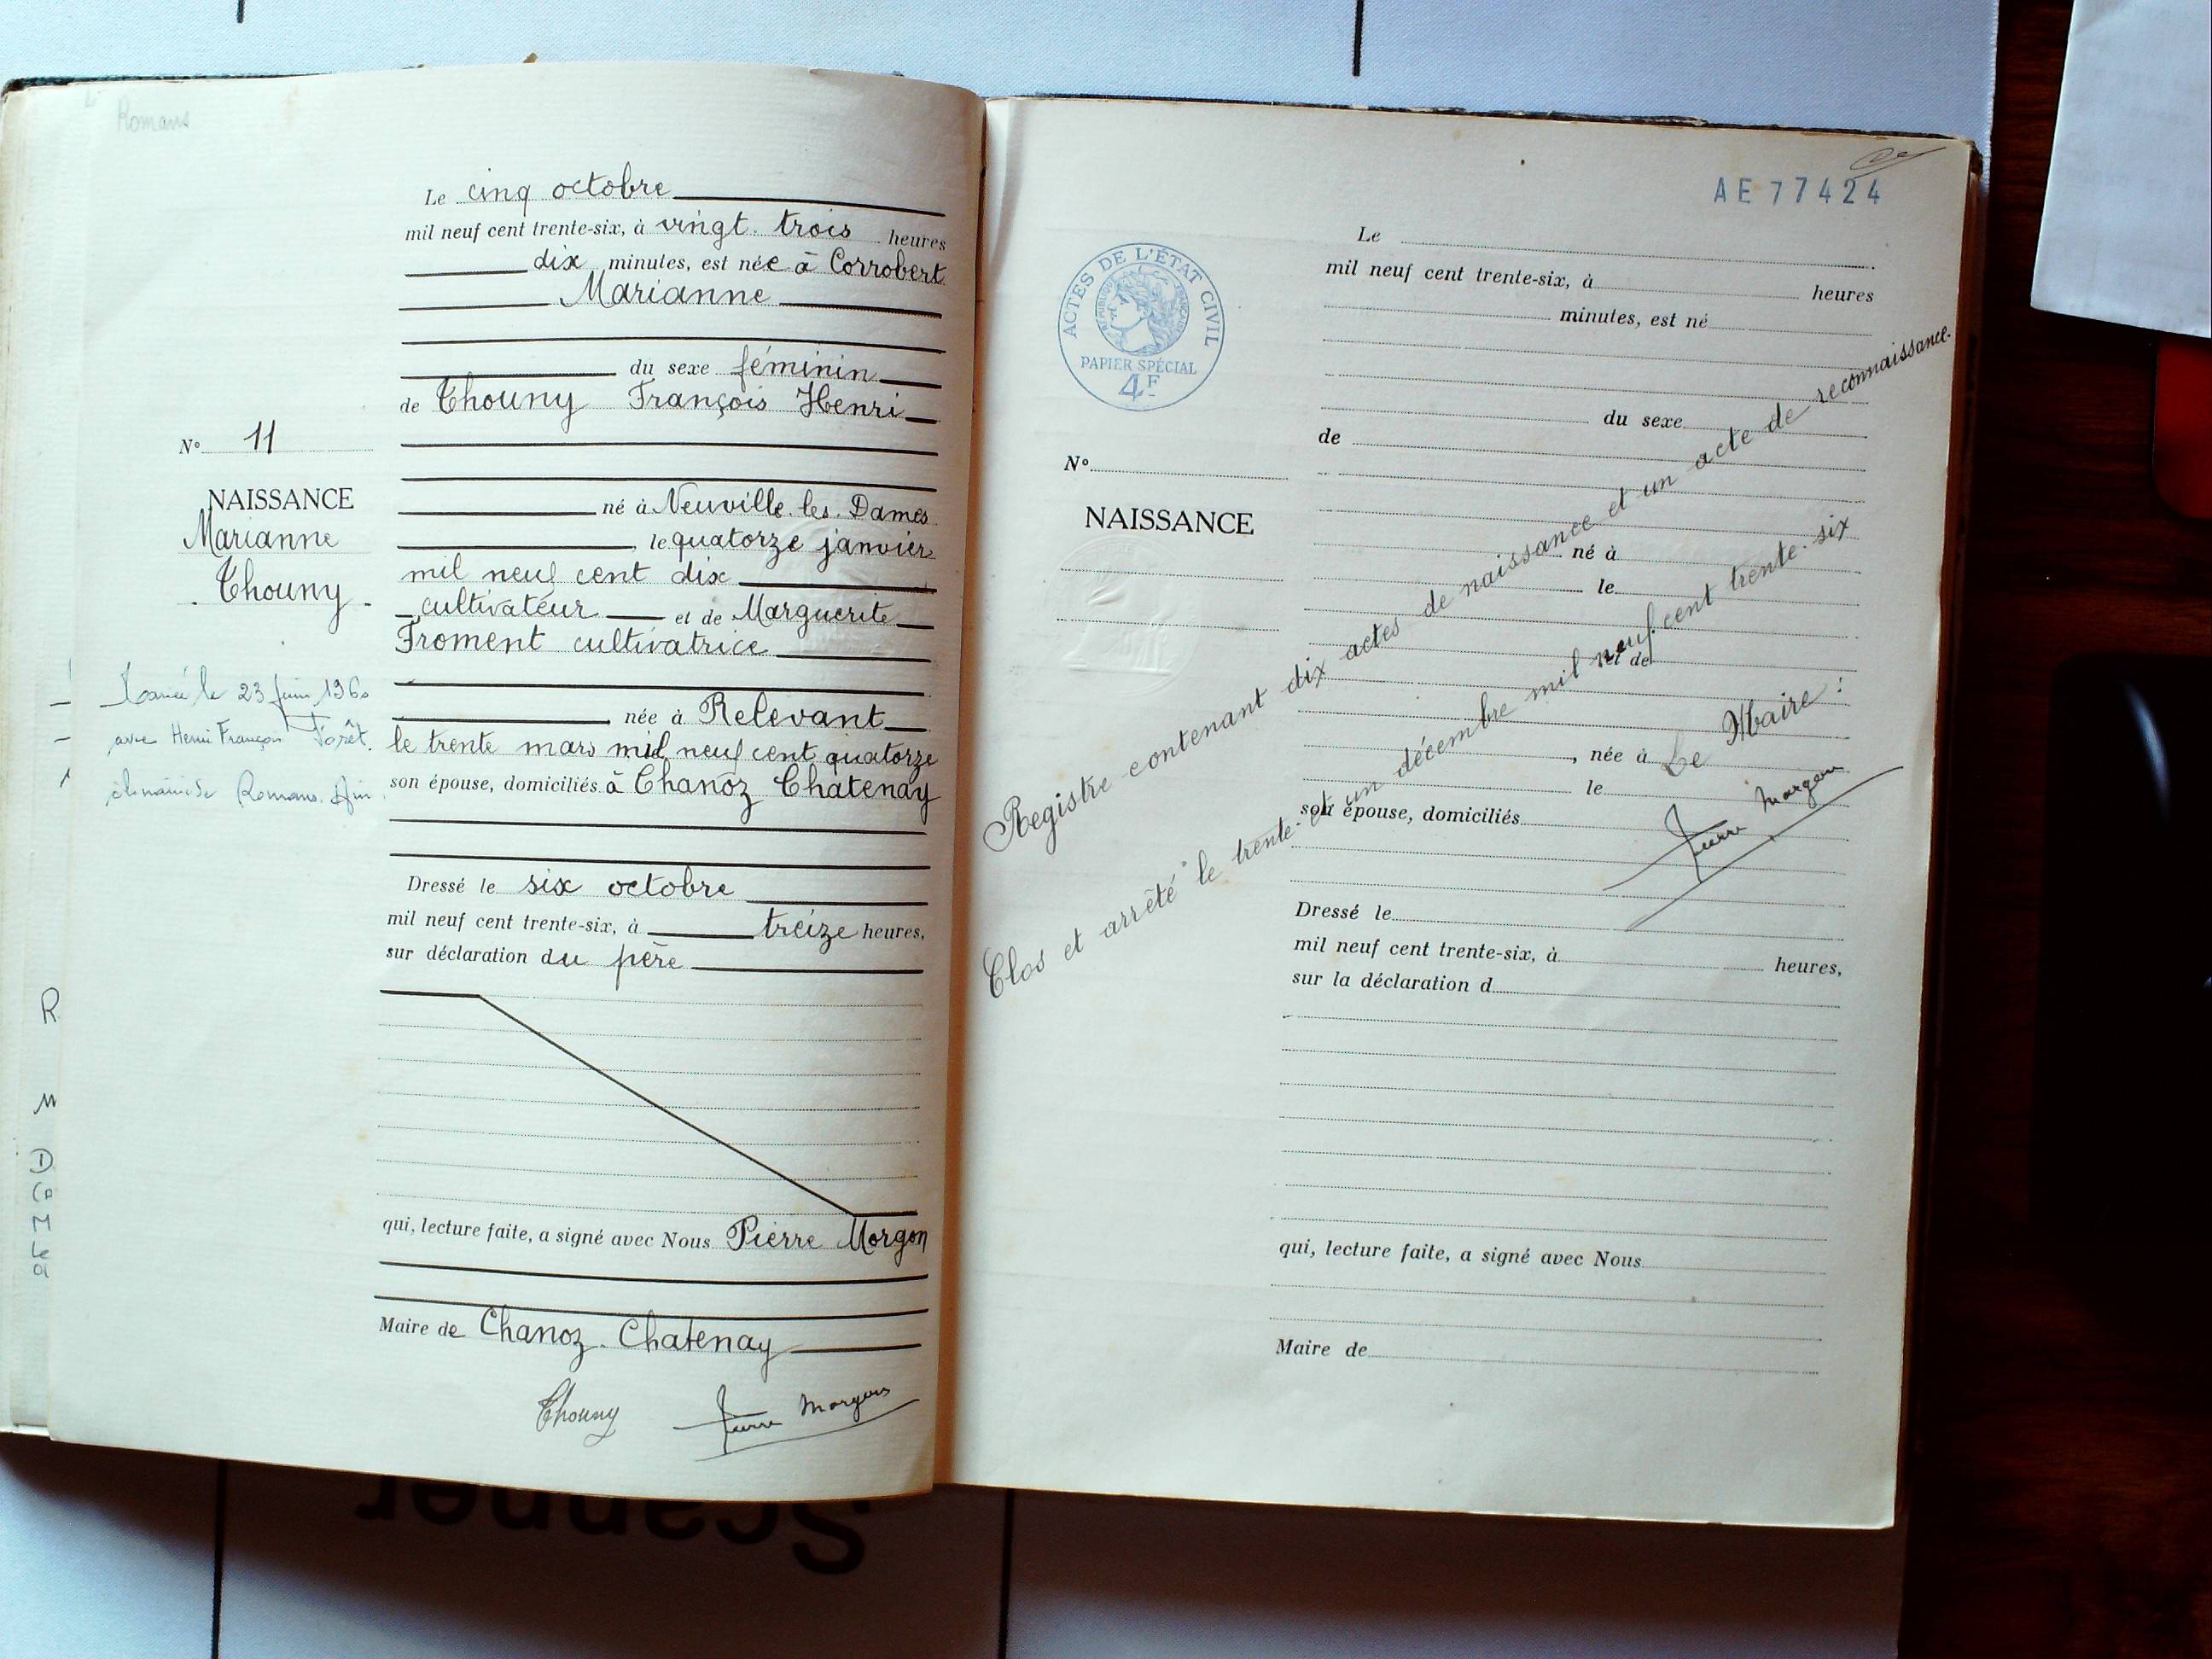 Romans
Le cinq octobre
mil neuf cent trente-six, à vingt. trois heures
dix minutes, est née à Corrobert
Marianne
du sexe féminin
de Thouny François Henri
N° 11
NAISSANCE
Marianne
Thouny
né à Neuville. les. Dames
le quatorze janvier
mil neuf cent dix
cultivateur et de Marguerite
Froment cultivatrice
née à Relevant
le trente mars mil neuf cent quatorze
son épouse, domiciliés à Chanoz Chatenay
le 23 juin 1960
avec Henri François Forêt.
Romans. Ain
Dressé le six octobre
mil neuf cent trente-six, à treize heures,
sur déclaration du père
qui, lecture faite, a signé avec Nous Pierre Morgon
Maire de Chanoz. Chatenay
Thouny Pierre Morgon
R
M
D
M
AE77424
ACTES DE L'ÉTAT CIVIL
RÉPUBLIQUE FRANÇAISE
PAPIER SPÉCIAL
4F
Le
mil neuf cent trente-six, à heures
minutes, est né
du sexe
de
N°
NAISSANCE
né à
le
et de
, née à
le
son épouse, domiciliés
Dressé le
mil neuf cent trente-six, à heures,
sur la déclaration d
qui, lecture faite, a signé avec Nous
Maire de
Registre contenant dix actes de naissance et un acte de reconnaissance.
Clos et arrêté le trente et un décembre mil neuf. cent trente. six
Le Maire :
Pierre Morgon
Scanner